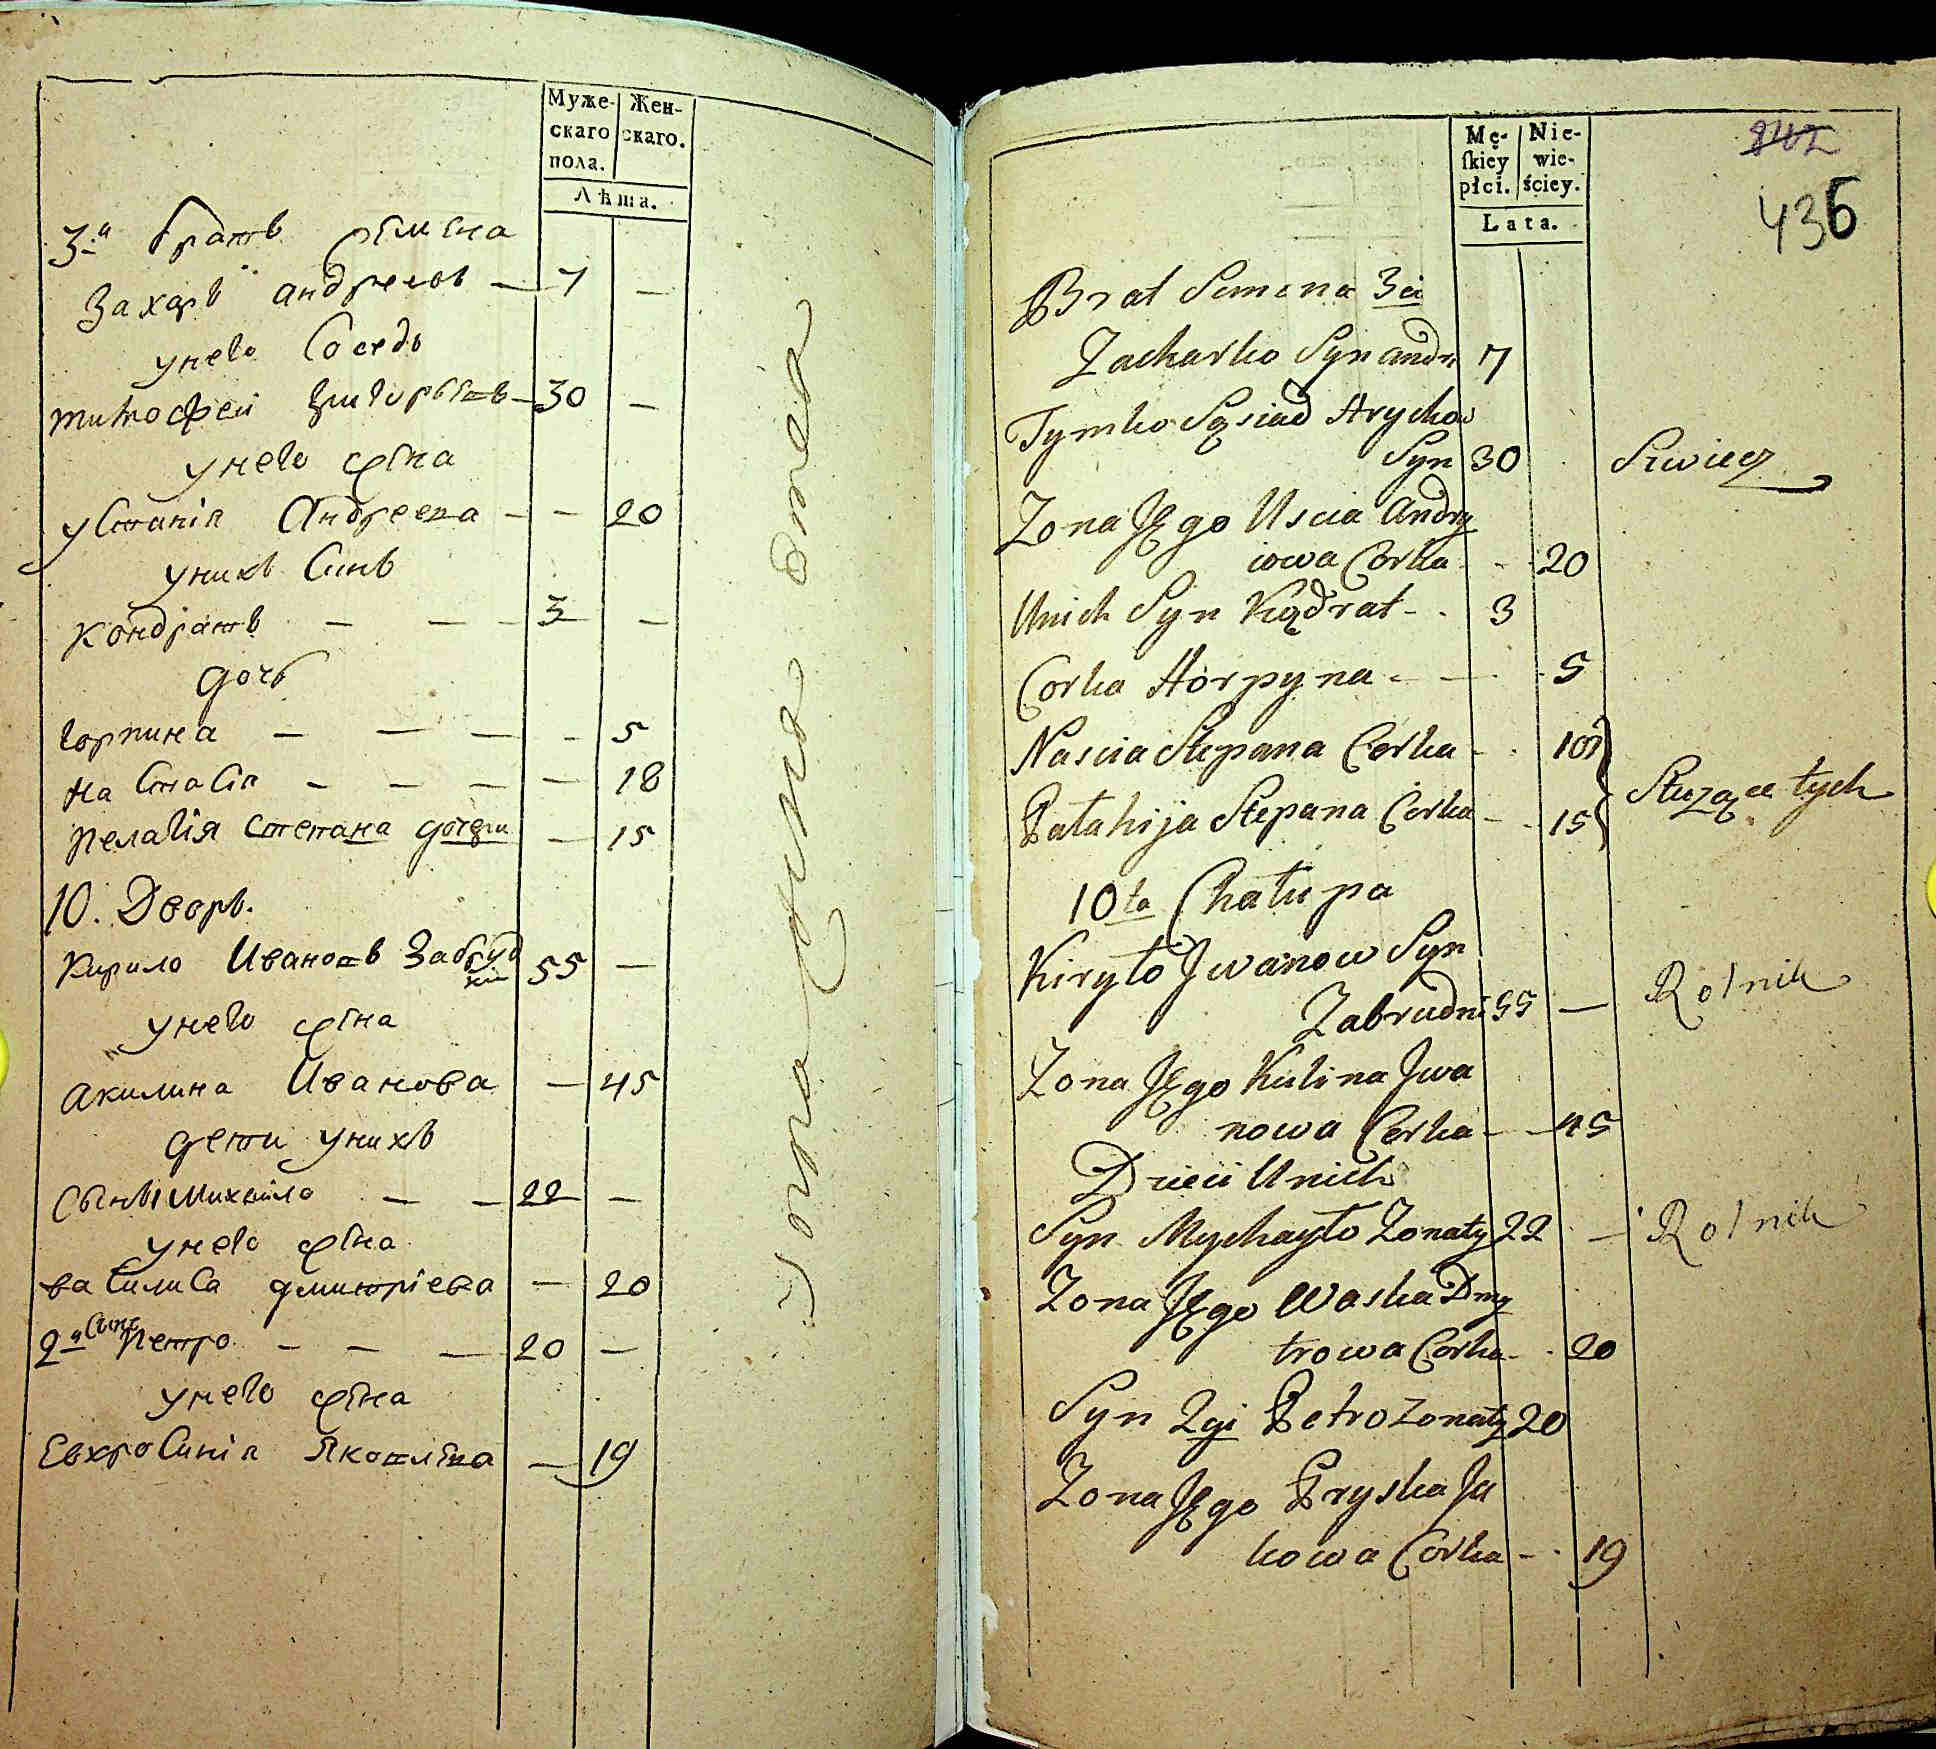 Муже-
скаго
пола.
Жен-
скаго.
Лѣта.
3й братъ Семена
Захаръ Андреевъ — 7 —
у него соседъ
тимофей Григорьевъ — 30 —
у него жена
Устинія Андреева - - 20
у нихъ Синъ
Кондратъ — — - 3 —
дочь
Горпина — — — - 5
Настасія — — — — 18
Пелагія Степана дочери — 15
10. Дворъ.
Кирило Ивановъ Забруд
ній 55 —
у него жена
Акилина Иванова — 45
дети у нихъ
Сынъ Михайло — — 22 —
у него жена
Василиса Дмитріева — 20
2й Синъ Петро — — — 20 —
у него жена
Евхросинія Яковлева — 19
Mę-
skiey
płci.
Nie-
wie-
ściey.
Lata.
842
436
Brat Semena 3ci
Zacharko Syn Andr 7
Tymko Sąsiad Hryckow
Syn 30 Szwiec
Zona Jego Uscia Andry
iowa Corka - - 20
Unich Syn Kądrat - - 3
Corka Horpyna - — - 5
Nascia Stepana Corka - - 18
Pałahija Stepana Corka - - 15
Służące tych
10ta Chałupa
Kiryło Jwanow Syn
Zabrudni 55 — Rolnik
Zona Jego Kulina Jwa
nowa Corka — — 45
Dzieci Unich
Syn Mychayło Zonaty 22 — Rolnik
Zona Jego Waska Dmy
trowa Corka - - 20
Syn 2gi Petro Zonaty 20
Zona Jego Pryska Ja
kowa Corka - - 19